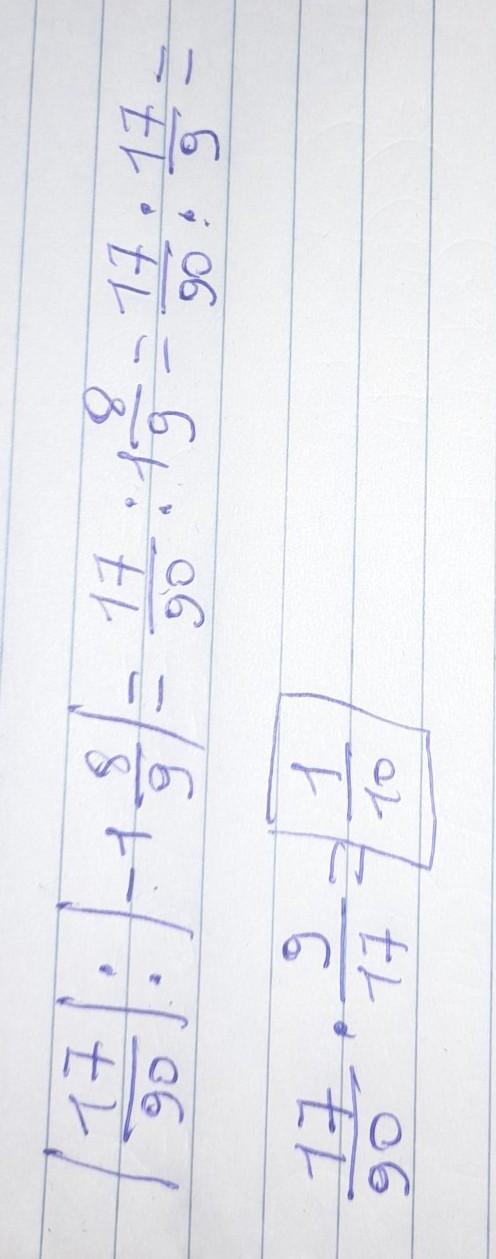 |17/90| : |-1 8/9| = 17/90 : 1 8/9 = 17/90 : 17/9 =
17/90 · 9/17 = 1/10